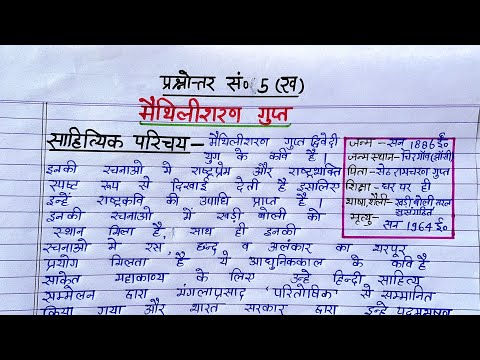 प्रश्नोत्तर सं॰ 5 (ख)
मैथिलीशरण गुप्त
साहित्यिक परिचय – मैथिलीशरण गुप्त द्विवेदी
युग के कवि है।
इनकी रचनाओ मे राष्ट्रप्रेम और राष्ट्रभक्ति
स्पष्ट रूप से दिखाई देती है इसलिए
इन्हें राष्ट्रकवि की उपाधि प्राप्त है।
इनकी रचनाओं में खड़ी बोली को
स्थान मिला है, साथ ही इनकी
रचनाओ मे रस, छन्द व अलंकार का भरपूर
प्रयोग मिलता है ये आधुनिककाल के कवि है
साकेत महाकाव्य के लिए उन्हे हिन्दी साहित्य
सम्मेलन द्वारा मंगलाप्रसाद 'परितोषिक' से सम्मानित
किया गया और भारत सरकार द्वारा इन्हे पदमभूषण
जन्म – सन् 1886 ई०
जन्म स्थान – चिरगाँव (झाँसी)
पिता – सेठ रामचरण गुप्त
शिक्षा – घर पर ही
भाषा, शैली – खड़ी बोली सरल
सुसंगठित
मृत्यु – सन 1964 ई०